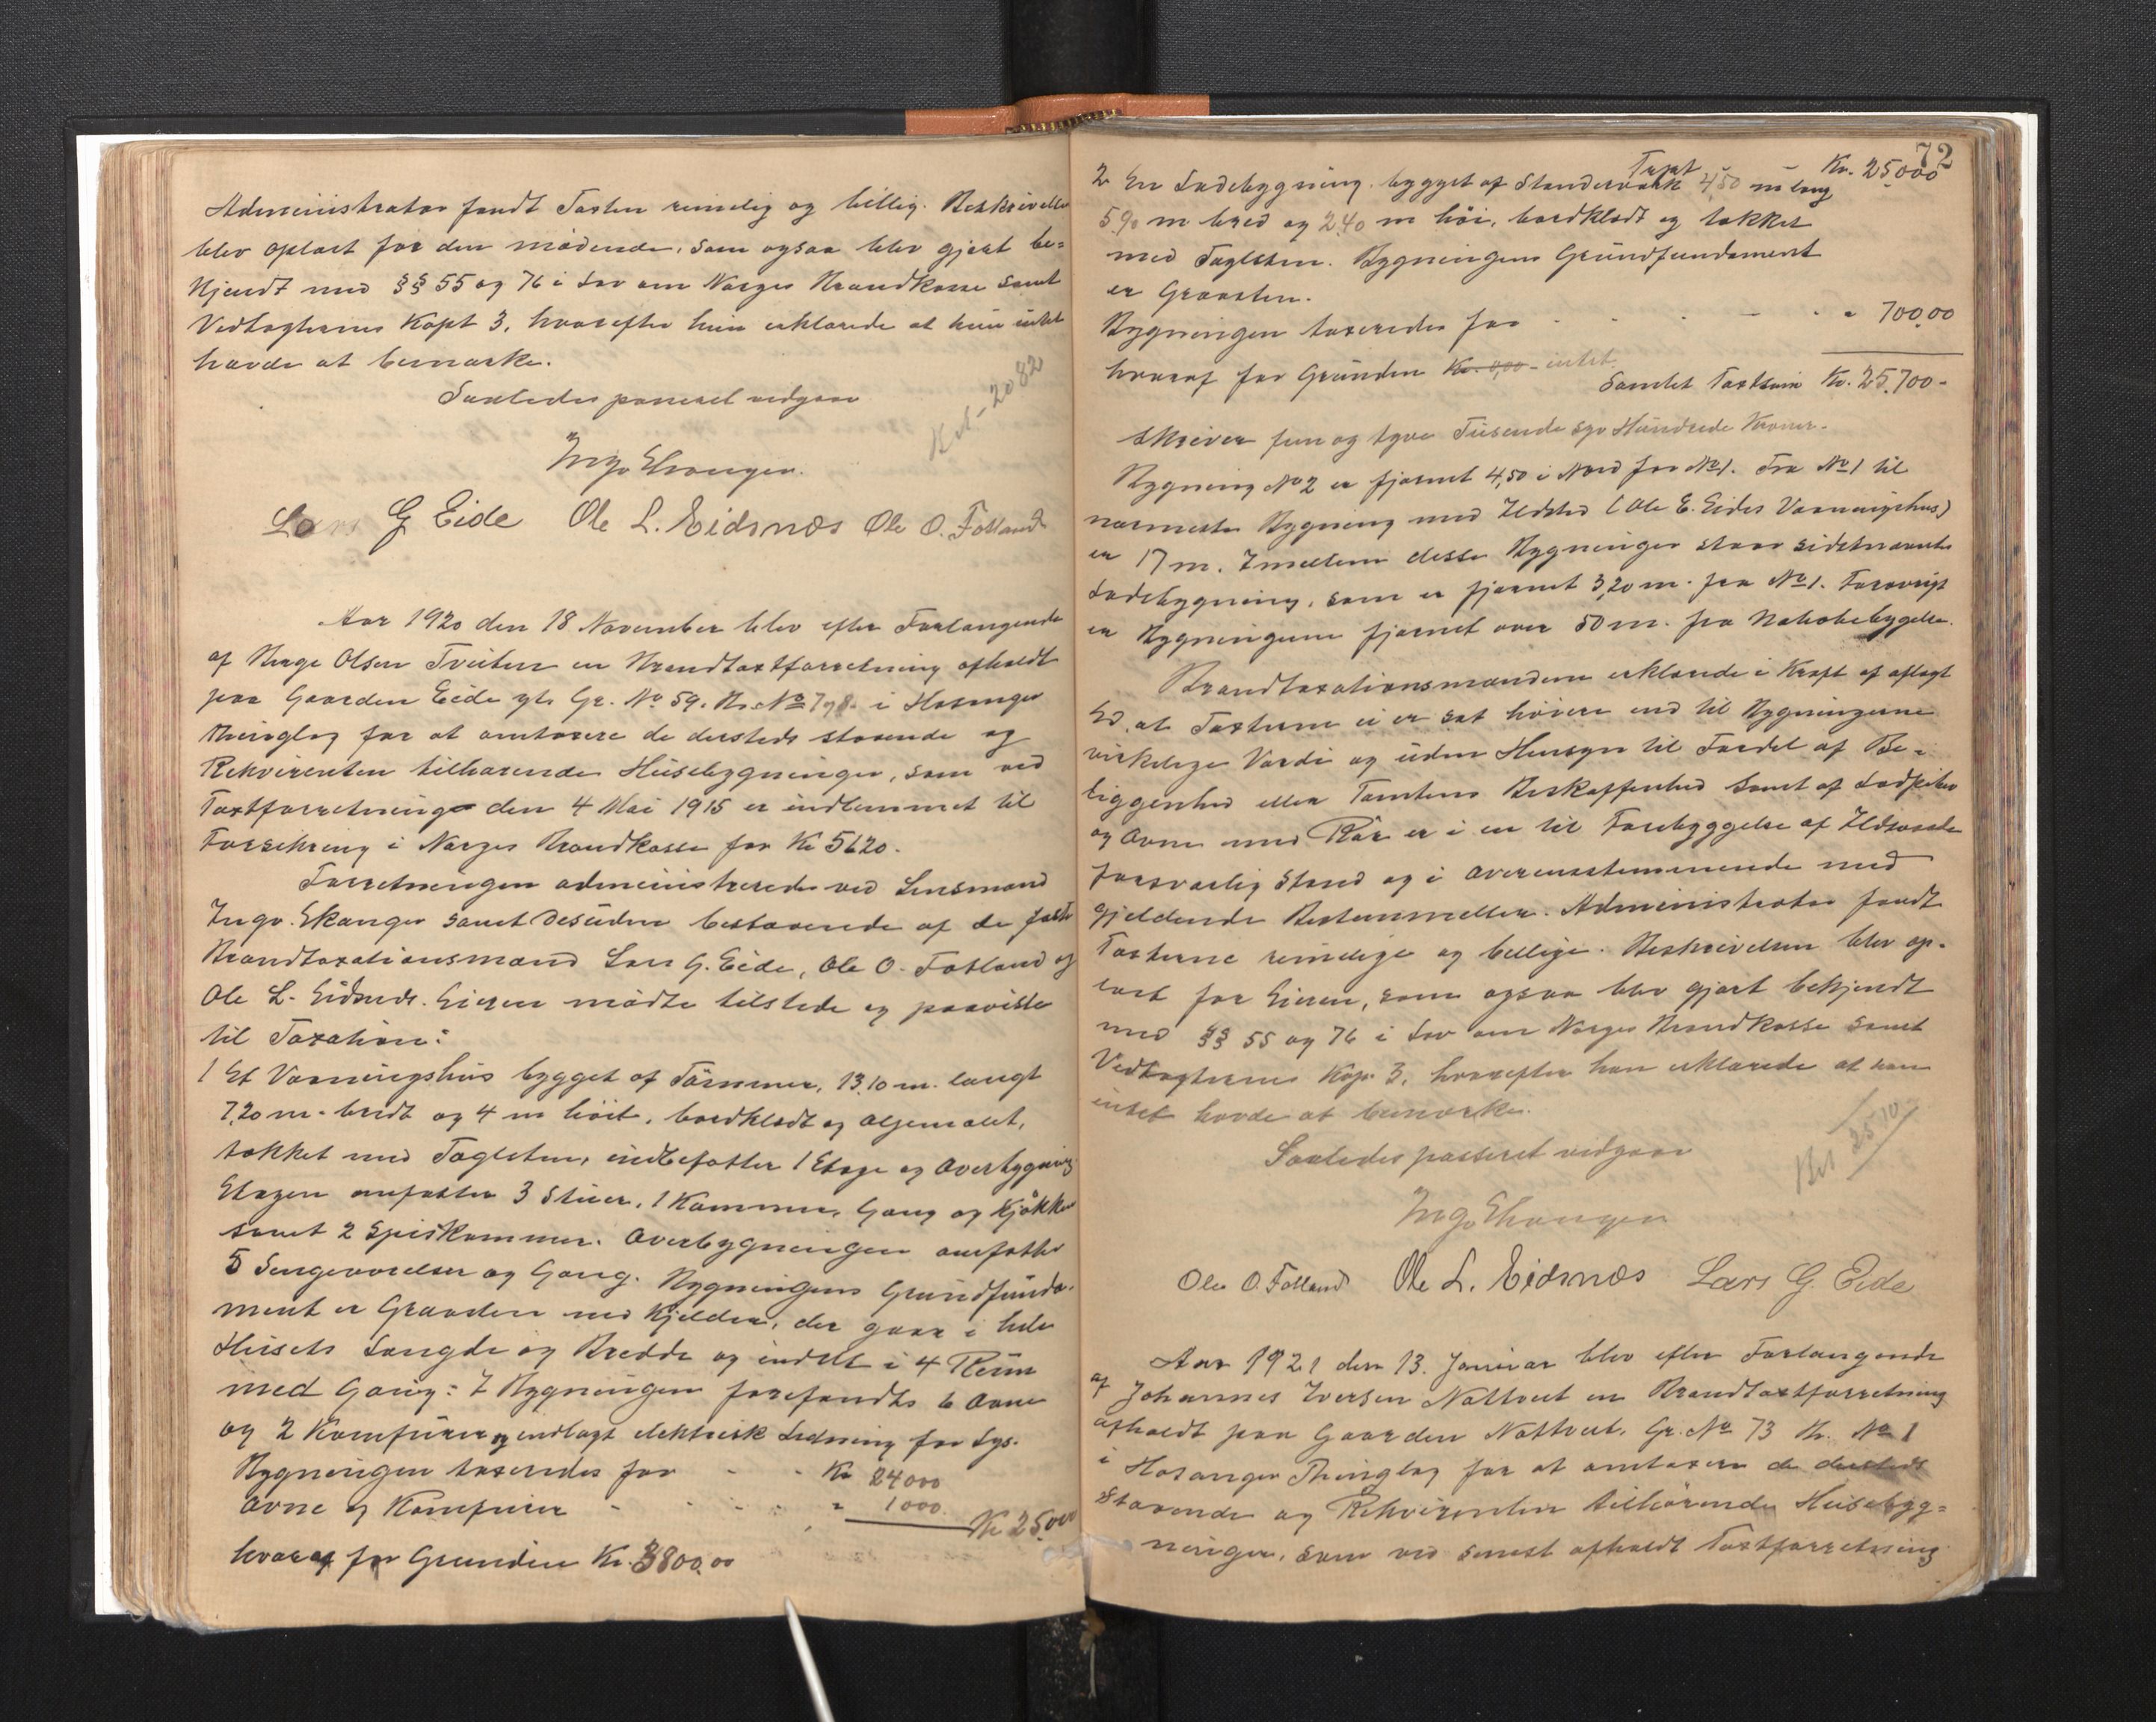 Administrator fandt Taxten rimelig og billig. Beskrivelsen
blev oplæst for den mødende, som ogsaa blev gjort be-
kjendt med §§ 55 og 76 i Lov om Norges Brandkasse samt
Vedtægternes Kapt 3, hvorefter hun erklærede at hun intet
havde at bemærke.
Saaledes passeret vedgaar
Bet - 2082
Ingv Ekanger.
Lars G Eide Ole L. Eidsnes Ole O. Fotland
Aar 1920 den 18 November blev efter Forlangende
af Børge Olsen Tveiten en Brandtaxtforretning afholdt
paa Gaarden Eide ytr. Gr. No 59. Br. No 7 og 8 i Hosanger
Thinglag for at omtaxere de dersteds staaende og
Rekvirenten tilhørende Husebygninger, som ved
Taxtforretning den 4 Mai 1915 er indlemmet til
Forsikring i Norges Brandkasse for Kr 5620.
Forretningen administreredes ved Lensmand
Ingv. Ekanger samt desuden bestaaende af de faste
Brandtaxationsmænd Lars G. Eide, Ole O. Fotland og
Ole L. Eidsnes. Eieren mødte tilstede og paaviste
til Taxation:
1 Et Vaaningshus bygget af Tømmer, 13,10 m. langt
7,20 m. bredt og 4 m høit, bordklædt og oljemalet,
tækket med Taglsten, indbefatter 1 Etage og Overbygning
Etagen omfatter 3 Stuer, 1 Kammer, Gang og Kjøkken
samt 2 Spiskammer. Overbygningen omfatter
5 Sengeværelser og Gang. Bygningens Grundfunda-
ment er Graasten med Kjelder, der gaar i hele
Husets Længde og Bredde og inddelt i 4 Rum
med Gang: I Bygningen forefandtes 6 Ovne
og 2 Komfurer og indlagt elektrisk Ledning for Lys.
Bygningen taxeredes for - - Kr 24000
Ovne og Komfurer - - - - " 1000. Kr 25000
hvoraf for Grunden Kr. 3800.00
72
Taxt - Kr. 25,000
2 En Ladebygning bygget af Stenderværk 4,50 m lang
5,90 m bred og 2,40 m høi, bordklædt og tækket
med Taglsten. Bygningens Grundfundament
er Graasten.
Bygningen taxeredes for - - - - " 700,00
hvoraf for Grunden Kr. 0,00 - intet
Samlet Taxtsum Kr. 25,700 -
skriver fem og tyve Tusende syv Hundrede Kroner.
Bygning No 2 er fjernet 4,50 i Nord for No 1. Fra No 1 til
nærmeste Bygning med Ildsted (Ole E. Eides Vaaningshus)
er 17 m. Imellem disse Bygninger staar sidstnævntes
Ladebygning, som er fjernet 3,20 m. fra No 1. Forøvrigt
er Bygningerne fjernet over 50 m. fra Nabobebyggelse.
Brandtaxationsmændene erklærede i Kraft af aflagt
Ed, at Taxterne ei er sat høiere end til Bygningerne
virkelige Værdi og uden Hensyn til Fordel af Be-
liggenhed eller Tomtens Beskaffenhed samt at Ladpiber
og Ovne med Rør er i en til Forebyggelse af Ildsvaade
forsvarlig Stand og i overensstemmende med
gjeldende Bestemmelser. Administrator fandt
Taxterne rimelige og billige. Beskrivelsen blev op-
læst for Eieren, som ogsaa blev gjort bekjendt
med §§ 55 og 76 i Lov om Norges Brandkasse samt
Vedtægternes Kap. 3, hvorefter han erklærede at han
intet havde at bemærke.
Saaledes passeret vedgaar
Bet 25 10
Ingv Ekanger
Ole O. Fotland Ole L. Eidsnes Lars G. Eide
Aar 1921 den 13. Januar blev efter Forlangende
af Johannes Iversen Nottveit en Brandtaxtforretning
afholdt paa Gaarden Nottveit, Gr. No 73 Br. No 1
i Hosanger Thinglag for at omtaxere de dersteds
staaende og Rekvirenten tilhørende Husebyg-
ninger, som ved senest afholdt Taxtforretning